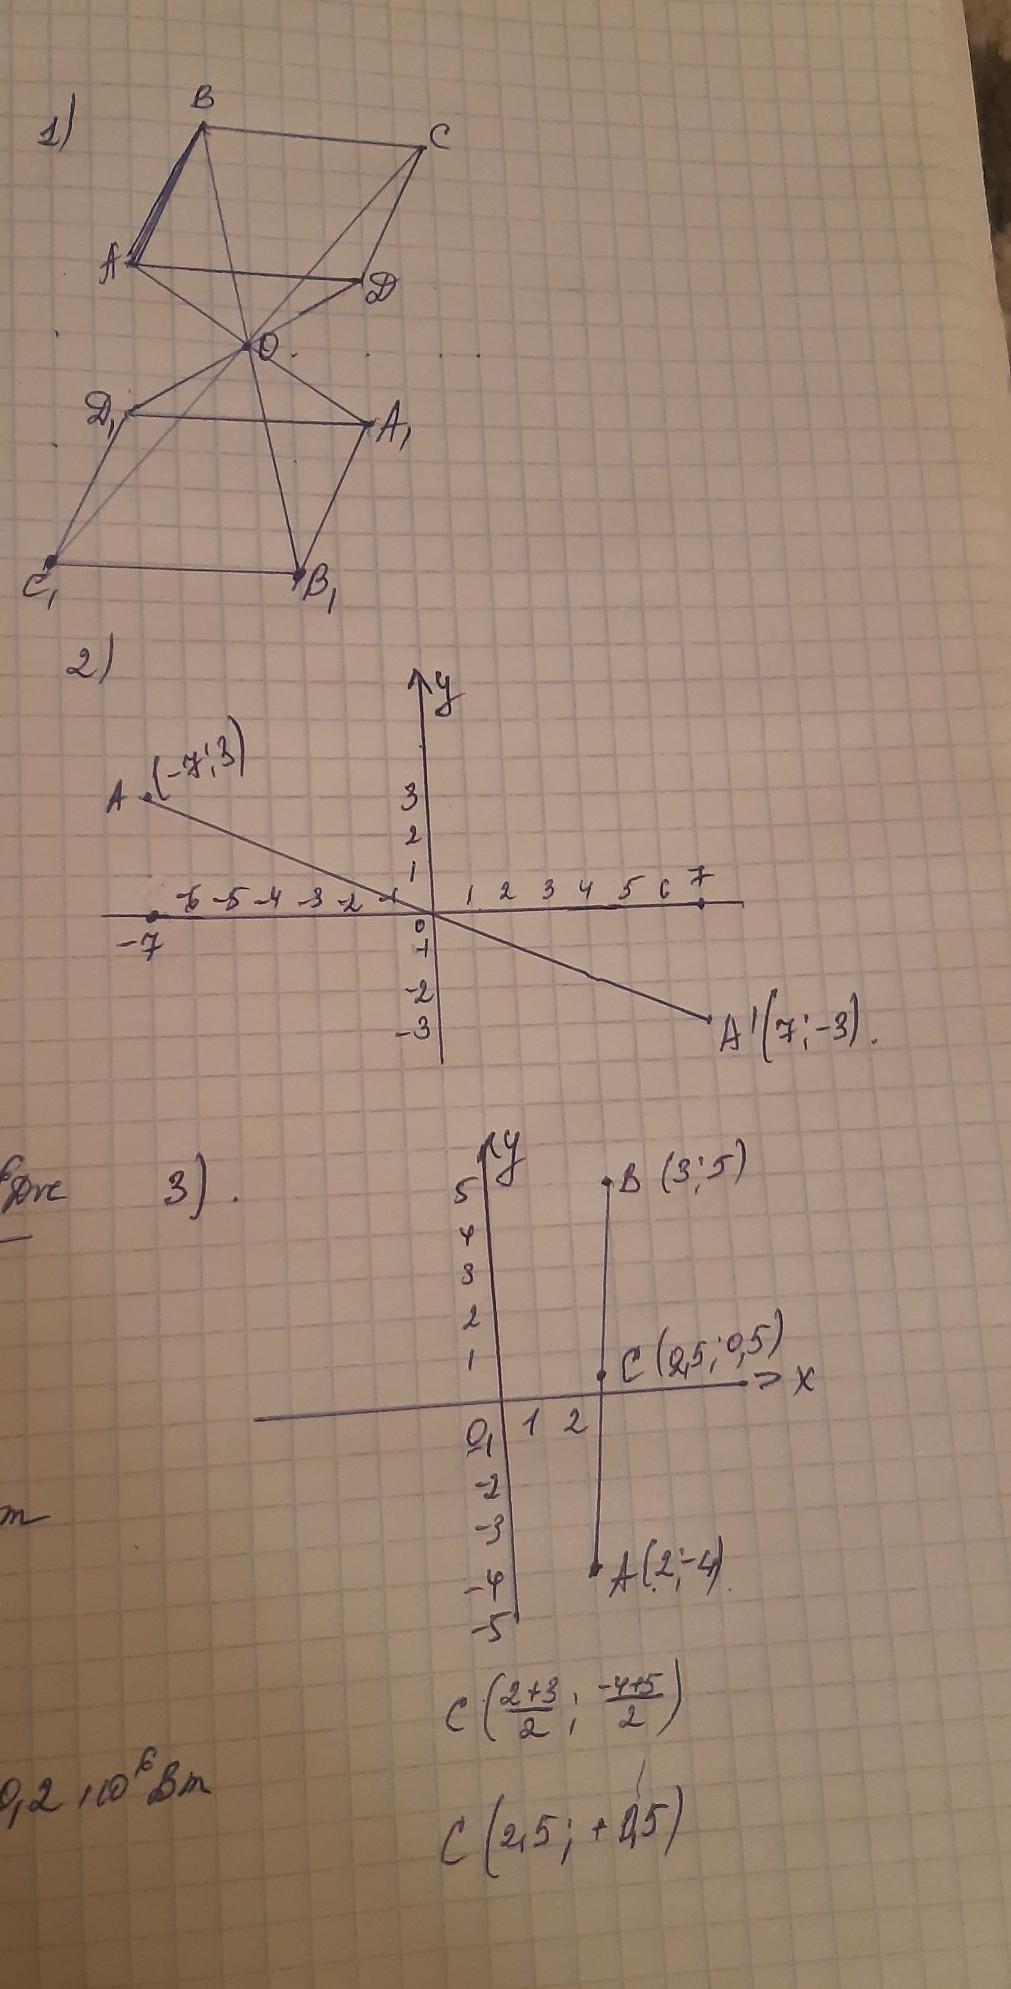 1)
B
C
A
D
O
D₁
A₁
C₁
B₁
2)
y
A (-7;3)
3
2
1
-6 -5 -4 -3 -2 -1 1 2 3 4 5 6 7
-7
0
-1
-2
-3
A'(7;-3).
3).
y
5
B (3;5)
4
3
2
1
C (2,5;0,5)
x
0 1 2
-2
-3
-4
A(2;-4).
-5
C (2+3/2; -4+5/2)
0,2 · 10⁶ Вт
C (2,5; +0,5)